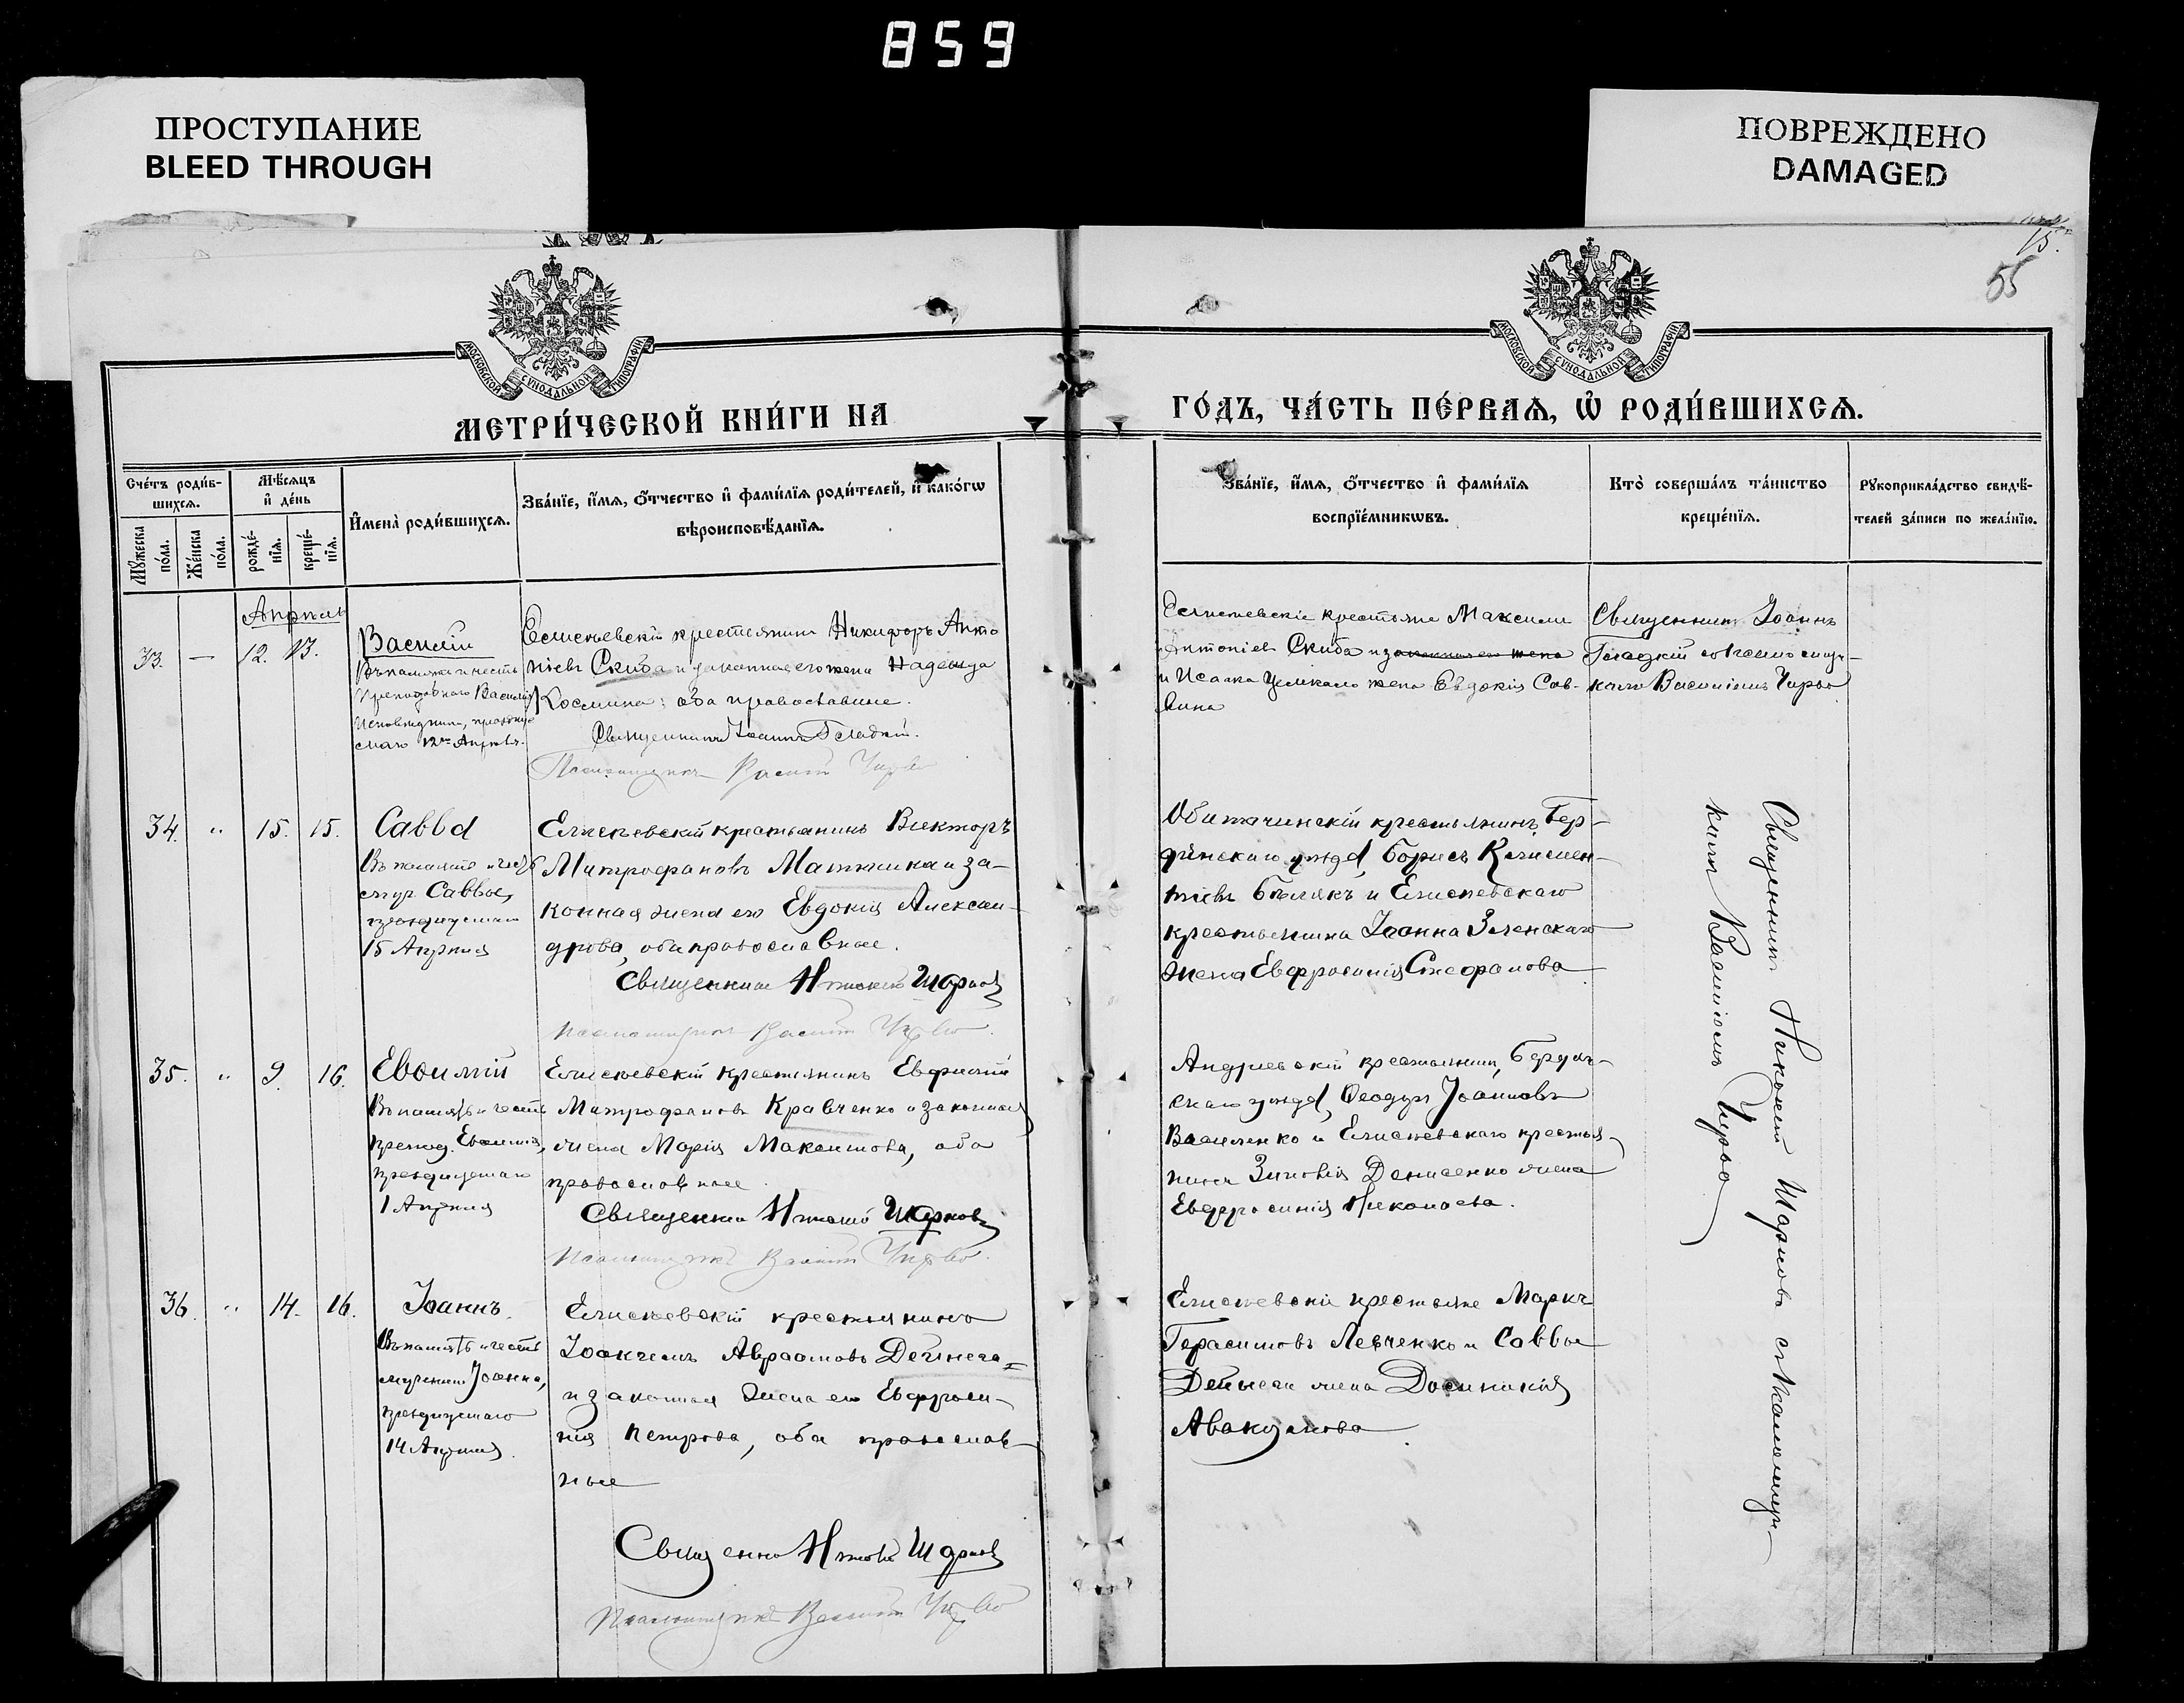 859
ПРОСТУПАНИЕ
BLEED THROUGH
ПОВРЕЖДЕНО
DAMAGED
15.
55
МОСКОВСКОЙ СѴНОДАЛЬНОЙ ТИПОГРАФІИ
МОСКОВСКОЙ СѴНОДАЛЬНОЙ ТИПОГРАФІИ
МЕТРИ́ЧЕСКОЙ КНИ́ГИ НА
ГО́ДЪ, ЧА́СТЬ ПЕ́РВАѦ, Ѡ РОДИ́ВШИХСѦ.
Сче́тъ роди́в-
шихсѧ.
Мꙋжеска по́ла.
Же́нска по́ла.
Мѣ́сѧцъ
и де́нь
рожде́-
нїѧ.
креще́-
нїѧ.
Имена̀ роди́вшихсѧ.
Зва́нїе, и́мѧ, о́тчество и фами́лїѧ роди́телей, и како́гѡ
вѣроисповѣ́данїѧ.
Зва́нїе, и́мѧ, о́тчество и фами́лїѧ
воспрїе́мникѡвъ.
Кто̀ соверша́лъ та́инство
креще́нїѧ.
Рꙋкоприкла́дство свидѣ́-
телей за́писи по жела́нїю.
Апрѣль
33. — 12. 13.
Василій
Въ память и честь
Преподобнаго Василія
Исповѣдника, празднуе
маго 12го Апрѣля.
Елисеевскій крестьянинъ Никифоръ Анто
ніевъ Скиба и законная его жена Надежда
Космина; оба православные.
Священникъ Іоаннъ Гладкій.
Псаломщикъ Василій Чирво
Елисеевскіе крестьяне Максимъ
Антоніевъ Скиба и законная его жена
и Исаака жена Евдокія Сав-
вина
Священникъ Іоаннъ
Гладкій съ псаломщи-
комъ Василіемъ Чирво
34. " 15. 15.
Савва
Въ память и честь
муч. Саввы,
празднуемаго
15 Апрѣля
Елисеевскій крестьянинъ Викторъ
Митрофановъ и за-
конная жена его Евдокія Алексан-
дрова, оба православные.
Священникъ
Псаломщикъ Василій Чирво.
Обиточинскій крестьянинъ, Бер-
дянскаго уѣзда, Борисъ Климен-
тіевъ Бѣлякъ и Елисеевскаго
крестьянина Іоанна Зеленскаго
жена Евфросинія Стефанова
35. " 9. 16.
Евѳимій
Въ память и честь
препод. Евѳимія,
празднуемаго
1 Апрѣля
Елисеевскій крестьянинъ Евфимій
Митрофановъ Кравченко и законная
жена Марія Максимова, оба
православные
Священникъ
Псаломщикъ Василій Чирво.
Андреевскій крестьянинъ, Бердян-
скаго уѣзда, Ѳеодоръ Іоанновъ
Василенко и Елисеевскаго крестья-
нина Зиновія Денисенко жена
Евфросинія Николаева.
36. " 14. 16.
Іоаннъ.
Въ память и честь
мученика Іоанна,
празднуемаго
14 Апрѣля.
Елисеевскій крестьянинъ
Іоакимъ Авраамовъ Дейнега
и законная жена его Евфроси-
нія Петрова, оба православ-
ные
Священникъ
Псаломщикъ Василій Чирво
Елисеевскіе крестьяне Маркъ
Герасимовъ Левченко и Саввы
Дейнеги жена Домникія
Авакумова
Священникъ съ псаломщи-
комъ Василіемъ Чирво